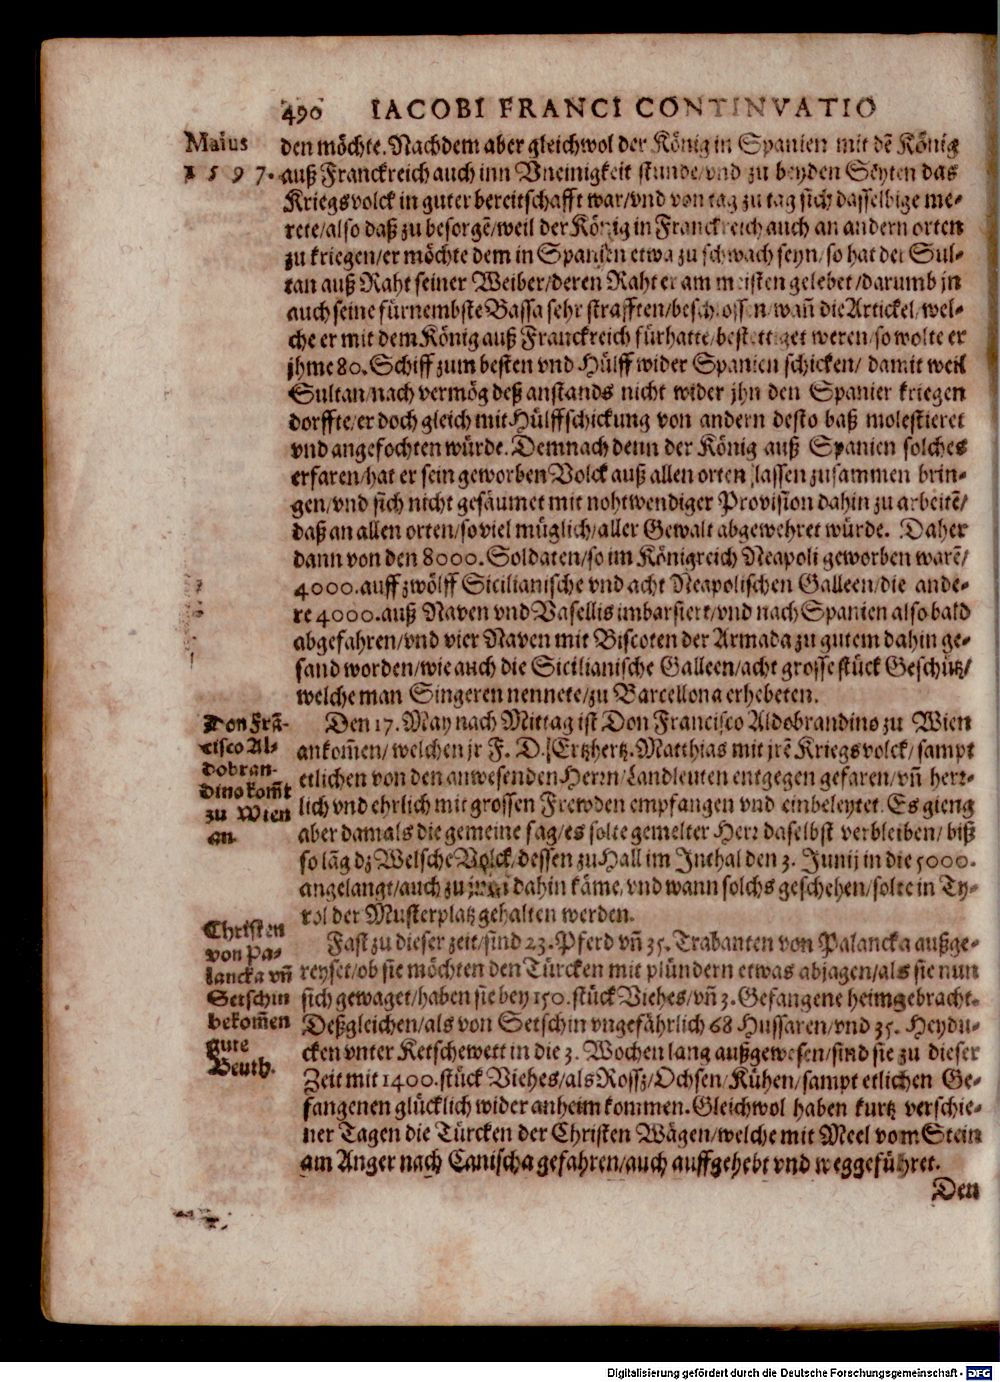 490 IACOBI FRANCI CONTINVATIO
Maius
1597.
den möchte. Nachdem aber gleichwol der König in Spanien mit dē König
auß Franckreich auch inn Vneinigkeit stunde/vnd zu beyden Seyten das
Kriegsvolck in guter bereitschafft war/vnd von tag zu tag sich dasselbige me-
rete/also daß zu besorgē/weil der König in Franckreich auch an andern orten
zu kriegen/er möchte dem in Spanien etwa zu schwach seyn/so hat der Sul-
tan auß Raht seiner Weiber/deren Raht er am meisten gelebet/darumb jn
auch seine fürnembste Bassa sehr strafften/beschlossen/wañ die Artickel/wel-
che er mit dem König auß Franckreich fürhatte/bestettiget weren/so wolte er
jhme 80. Schiff zum besten vnd Hülff wider Spanien schicken/ damit weil
Sultan/nach vermög deß anstands nicht wider jhn den Spanier kriegen
dorffte/er doch gleich mit Hülffschickung von andern desto baß molestieret
vnd angefochten würde. Demnach denn der König auß Spanien solches
erfaren/hat er sein geworben Volck auß allen orten lassen zusammen brin-
gen/vnd sich nicht gesäumet mit nohtwendiger Provision dahin zu arbeitē/
daß an allen orten/so viel müglich/aller Gewalt abgewehret würde. Daher
dann von den 8000. Soldaten/so im Königreich Neapoli geworben warē/
4000. auff zwölff Sicilianische vnd acht Neapolischen Galleen/die ande-
re 4000. auß Naven vnd Vasellis imbarsiert/vnd nach Spanien also bald
abgefahren/vnd vier Naven mit Biscoten der Armada zu gutem dahin ge-
sand worden/wie auch die Sicilianische Galleen/acht grosse stück Geschütz/
welche man Singeren nennete/zu Barcellona erhebeten.
Don Frā-
cisco Al-
dobran-
dino kom̄t
zu Wien
an.
Den 17. May nach Mittag ist Don Francisco Aldobrandino zu Wien
ankom̄en/welchen jr F. D. Ertzhertz. Matthias mit jrē Kriegsvolck/sampt
etlichen von den anwesenden Herrn/Landleuten entgegen gefaren/vñ herr-
lich vnd ehrlich mit grossen Frewden empfangen vnd einbeleytet. Es gieng
aber damals die gemeine sag/es solte gemelter Herr daselbst verbleiben/biß
so lāg dz Welsche Volck/dessen zu Hall im Inthal den 3. Junij in die 5000.
angelangt/auch zu jm dahin käme/vnd wann solchs geschehen/solte in Ty-
rol der Musterplatz gehalten werden.
Christen
von Pa-
lancka vñ
Setschin
bekom̄en
gute
Beuth.
Fast zu dieser zeit/sind 23. Pferd vñ 35. Trabanten von Palancka außge-
reyset/ob sie möchten den Türcken mit plündern etwas abjagen/als sie nun
sich gewaget/haben sie bey 150. stück Viehes/vñ 3. Gefangene heimgebracht.
Deßgleichen/als von Setschin vngefährlich 68 Hussaren/vnd 35. Heydu-
cken vnter Ketschewett in die 3. Wochen lang außgewesen/sind sie zu dieser
Zeit mit 1400. stück Viehes/als Rossz/Ochsen/Kühen/sampt etlichen Ge-
fangenen glücklich wider anheim kommen. Gleichwol haben kurtz verschie-
ner Tagen die Türcken der Christen Wägen/welche mit Meel vom Stein
am Anger nach Canischa gefahren/auch auffgehebt vnd weggeführet.
Den
Digitalisierung gefördert durch die Deutsche Forschungsgemeinschaft - DFG